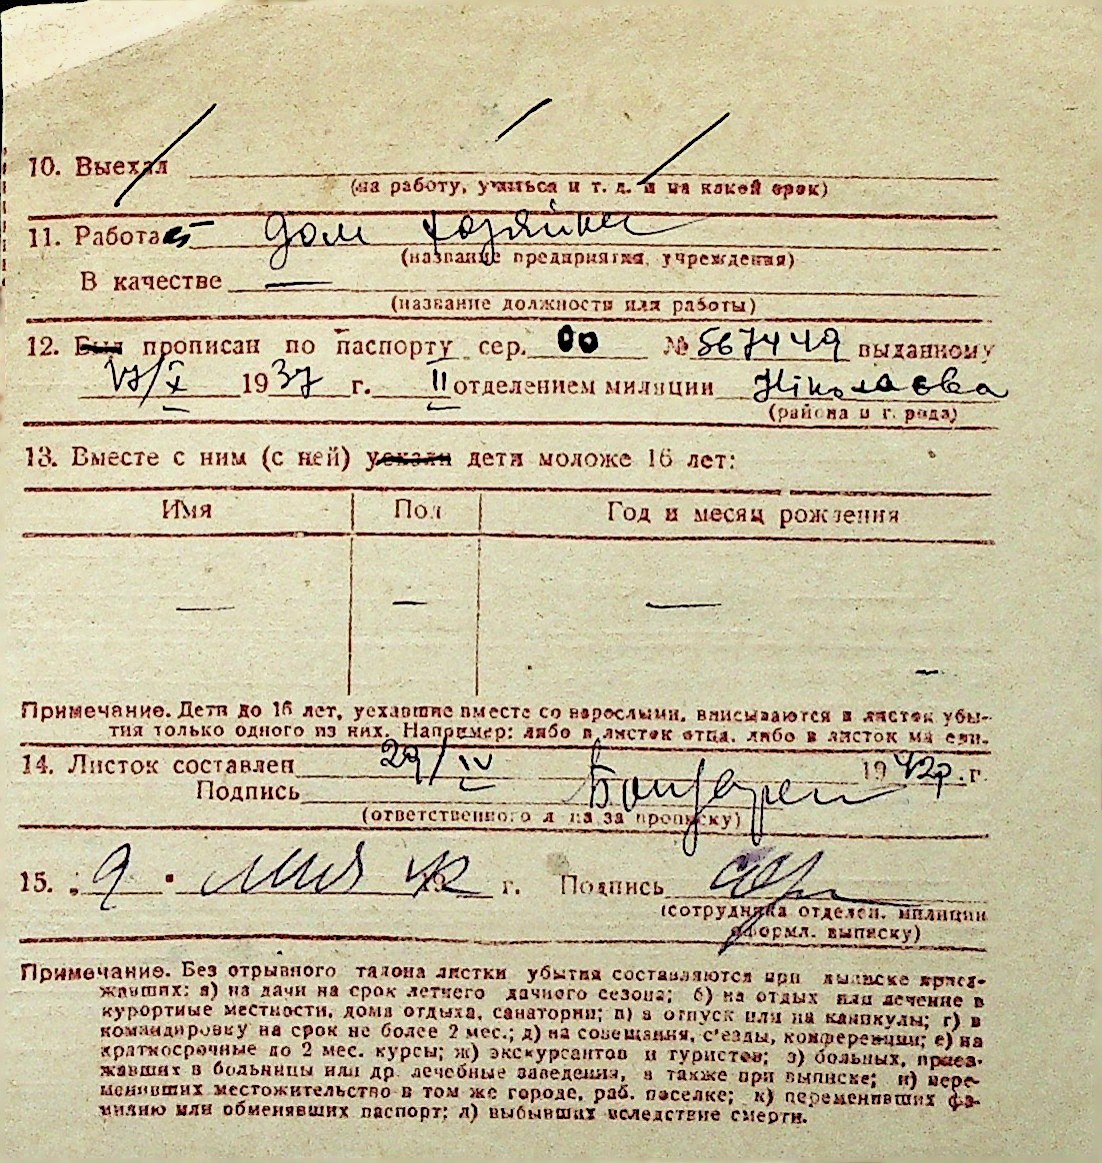 10. Выехал
(на работу, учиться и т. д. и на какой срок)
11. Работает дом хозяйка
(название предприятия, учреждения)
В качестве —
(название должности или работы)
12. Был прописан по паспорту сер. 00 № 567449 выданному
17/X 1937 г. II отделением милиции Ніколаєва
(района и города)
13. Вместе с ним (с ней) уехали дети моложе 16 лет:
Имя Пол Год и месяц рождения
— — —
Примечание. Дети до 16 лет, уехавшие вместе со взрослыми, вписываются в листок убы-
тия только одного из них. Например: либо в листок отца, либо в листок матери.
14. Листок составлен 29/IV 1942р. г.
Подпись
(ответственного лица за прописку)
15. „9" 42 г. Подпись
(сотрудника отделен. милиции
оформл. выписку)
Примечание. Без отрывного талона листки убытия составляются при выписке приез-
жавших: а) на дачи на срок летнего дачного сезона; б) на отдых или лечение в
курортные местности, дома отдыха, санатории; в) в отпуск или на каникулы; г) в
командировку на срок не более 2 мес.; д) на совещания, с'езды, конференции; е) на
краткосрочные до 2 мес. курсы; ж) экскурсантов и туристов; з) больных, приез-
жавших в больницы или др. лечебные заведения, а также при выписке; и) пере-
менивших местожительство в том же городе, раб. поселке; к) переменивших фа-
милию или обменявших паспорт; л) выбывших вследствие смерти.